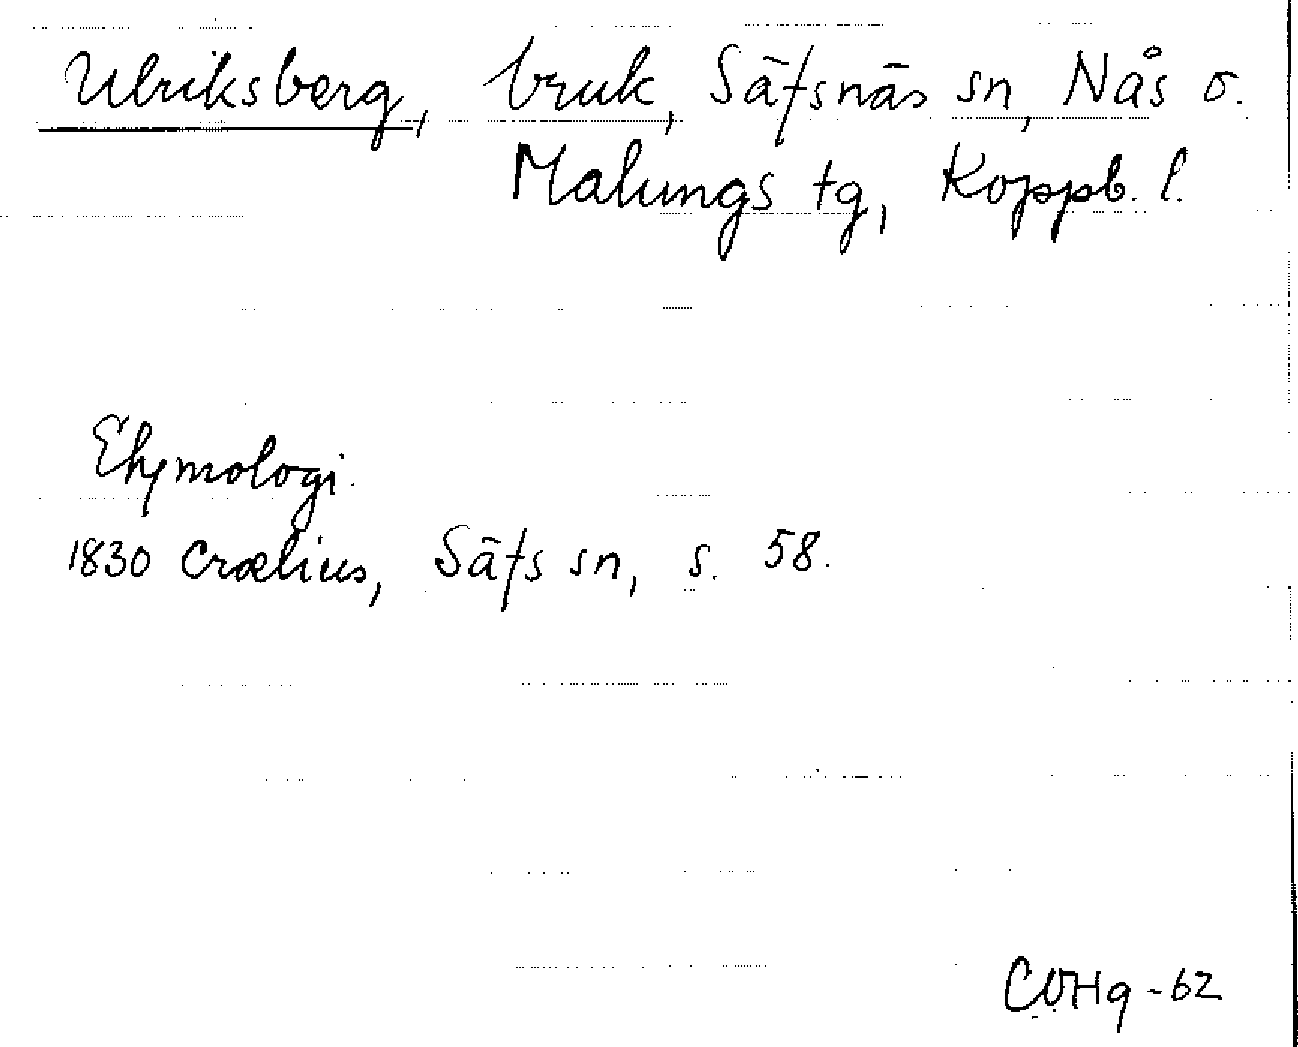 Ulriksberg, bruk, Säfsnäs sn, Nås o.
Malungs tg, Koppb. l.
Etymologi.
1830 Crælius, Säfs sn, s. 58.
COHg -62